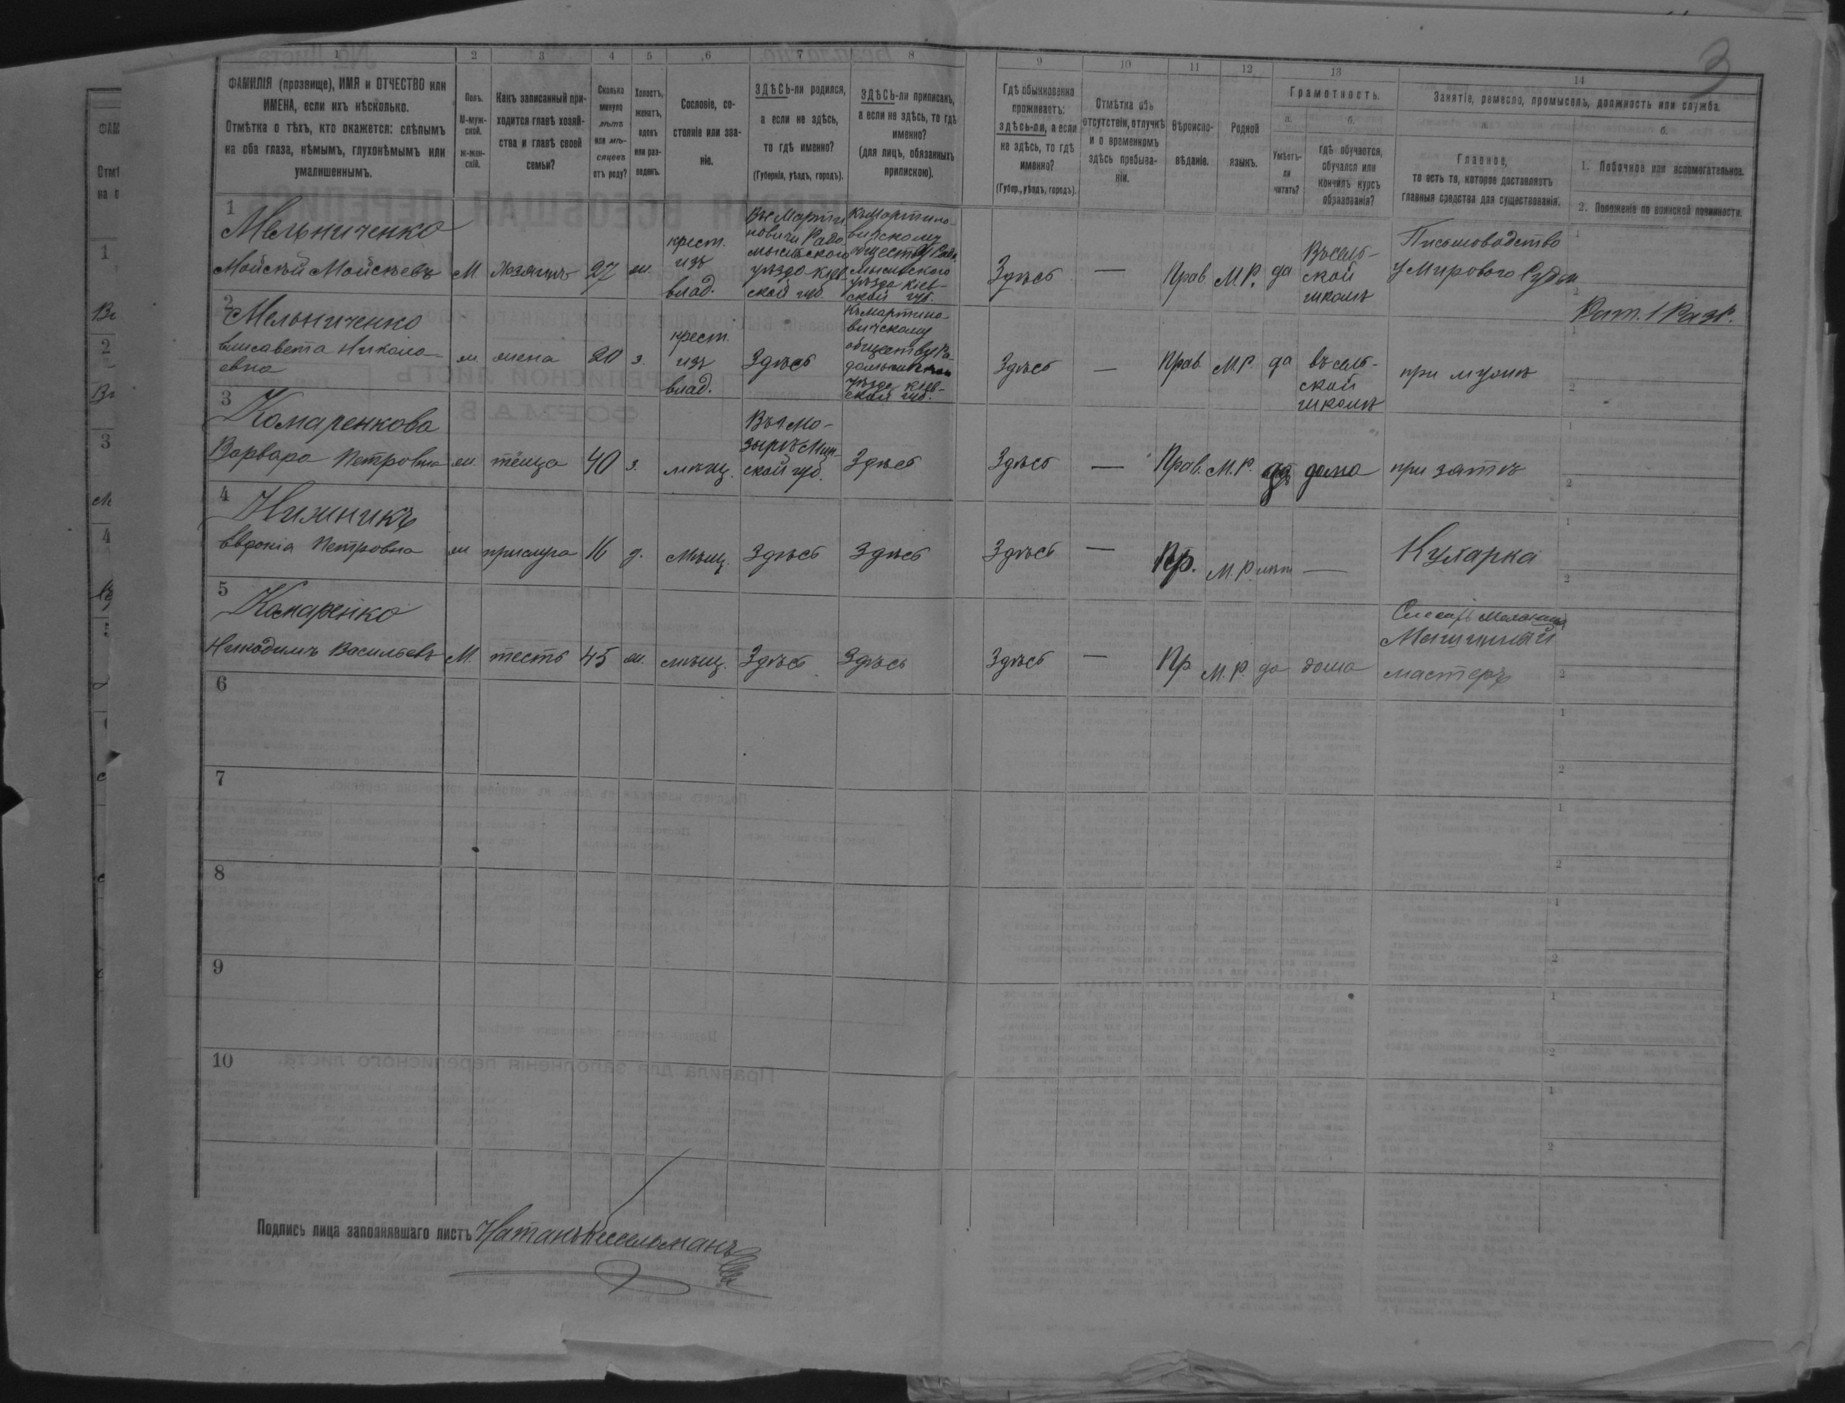 3
1 2 3 4 5 6 7 8 9 10 11 12 13 14
ФАМИЛІЯ (прозвище), ИМЯ и ОТЧЕСТВО или
ИМЕНА, если ихъ нѣсколько.
Отмѣтка о тѣхъ, кто окажется: слѣпымъ
на оба глаза, нѣмымъ, глухонѣмымъ или
умалишеннымъ.
Полъ.
М-муж-
ской.
ж-жен-
скій.
Какъ записанный при-
ходится главѣ хозяй-
ства и главѣ своей
семьи?
Сколько
минуло
лѣтъ
или мѣ-
сяцевъ
отъ роду?
Холостъ,
женатъ,
вдовъ
или раз-
веденъ.
Сословіе, со-
стояніе или зва-
ніе.
ЗДѢСЬ-ли родился,
а если не здѣсь,
то гдѣ именно?
(Губернія, уѣздъ, городъ).
ЗДѢСЬ-ли приписанъ,
а если не здѣсь, то гдѣ
именно?
(для лицъ, обязанныхъ
припискою).
Гдѣ обыкновенно
проживаетъ:
здѣсь-ли, а если
не здѣсь, то гдѣ
именно?
(Губер., уѣздъ, городъ).
Отмѣтка объ
отсутствіи, отлучкѣ
и о временномъ
здѣсь пребыва-
ніи.
Вѣроиспо-
вѣданіе.
Родной
языкъ.
Грамотность.
а.
Умѣетъ-
ли
читать?
б.
гдѣ обучается,
обучался или
кончилъ курсъ
образованія?
Занятіе, ремесло, промыселъ, должность или служба.
а.
Главное,
то есть то, которое доставляетъ
главныя средства для существованія.
б.
1. Побочное или вспомогательное.
2. Положеніе по воинской повинности.
1
Мельниченко
Мойсѣй Мойсѣевъ
М.
Хозяинъ
27
ж.
крест.
изъ
влад.
Въ Марти
новичи Радо
мысльского
уѣзда Кіев
ской губ.
Къ Мартино-
вичскому
обществу Радо
мысльского
уѣзда Кіев-
ской губ.
Здѣсь
—
Прав.
М.Р.
да
Въ сель-
ской
школѣ
Письмоводство
у Мирового Судьи
Рат. 1 Разр.
2
Мельниченко
Елисавета Никола-
евна
ж
жена
20
з.
крест.
изъ
влад.
Здѣсь
Къ Мартино-
вичскому
обществу Ра-
домысльского
уѣзда Кіев-
ской губ.
Здѣсь
—
Прав.
М.Р.
да
въ сель-
ской
школѣ
при мужѣ
3
Комаренкова
Варвара Петровна
ж.
тёща
40
з.
мѣщ.
Въ г. Мо-
зырѣ Мин-
ской губ.
Здѣсь
Здѣсь
—
Прав.
М.Р.
да
дома
при зятѣ
4
Нижникъ
Евдокія Петровна
ж
прислуга
16
д.
мѣщ.
Здѣсь
Здѣсь
Здѣсь
—
Пр.
М.Р.
нѣт
—
Кухарка
5
Комаренко
Никодимъ Васильевъ
М.
тесть
45
ж.
мѣщ.
Здѣсь
Здѣсь
Здѣсь
—
Пр
М.Р.
да
дома
Слесарь
Машинный
мастеръ
6
7
8
9
10
Подпись лица заполнявшаго листъ Натанъ Кесельманъ